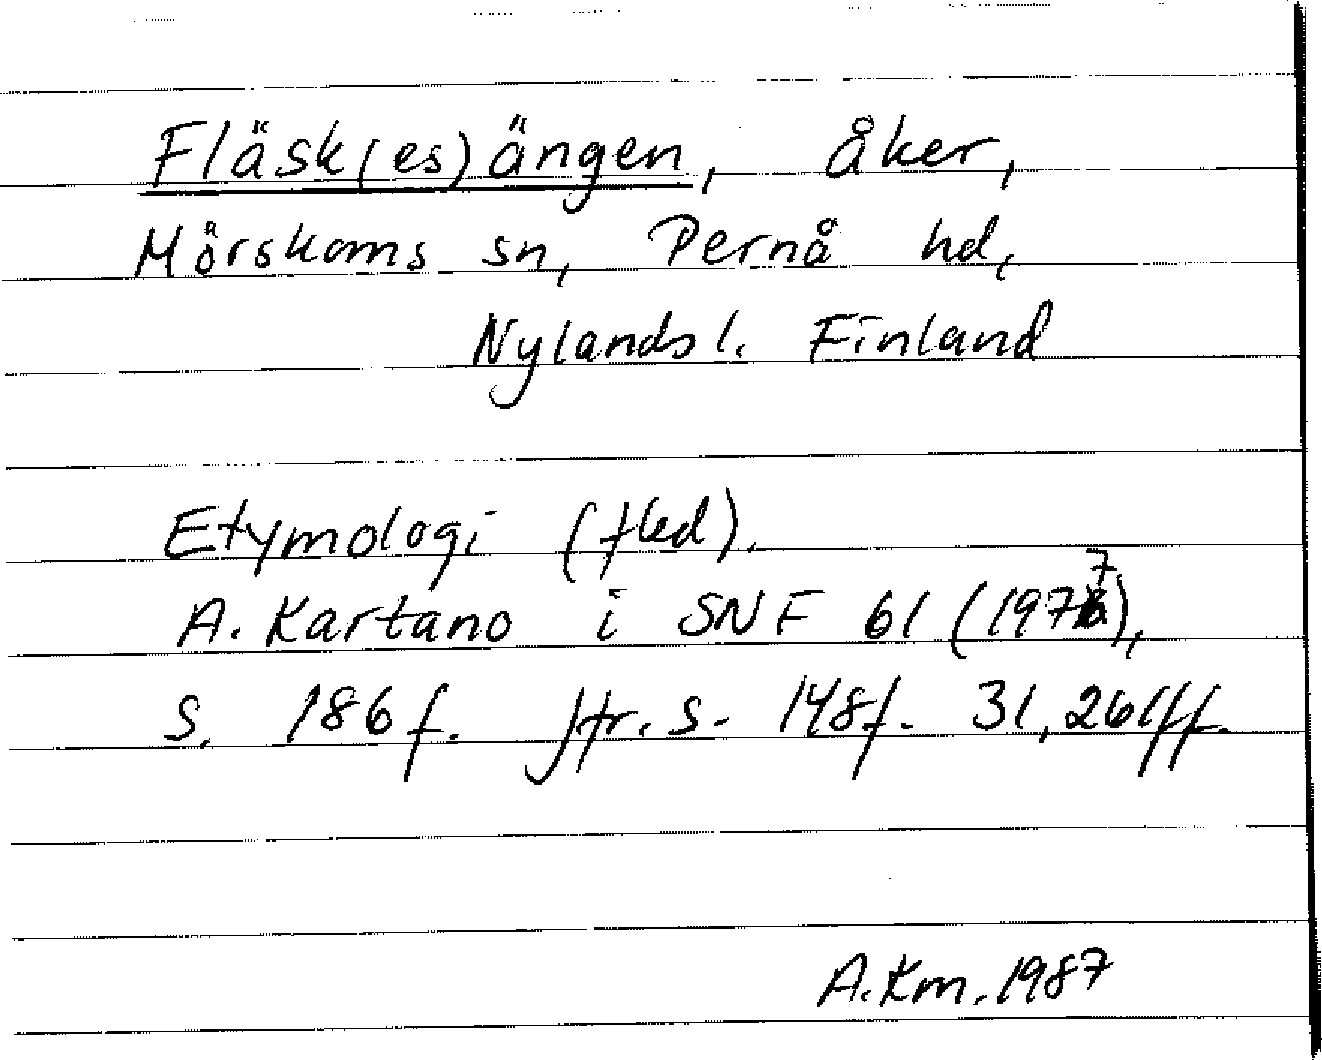 Fläsk(es)ängen, åker,
Mörskoms sn, Pernå hd,
Nylands l. Finland
Etymologi (fled).
A. Kartano i SNF 61 (1977),
s. 186 f. Jfr. s. 148f. 31, 261ff.
A.Km. 1987